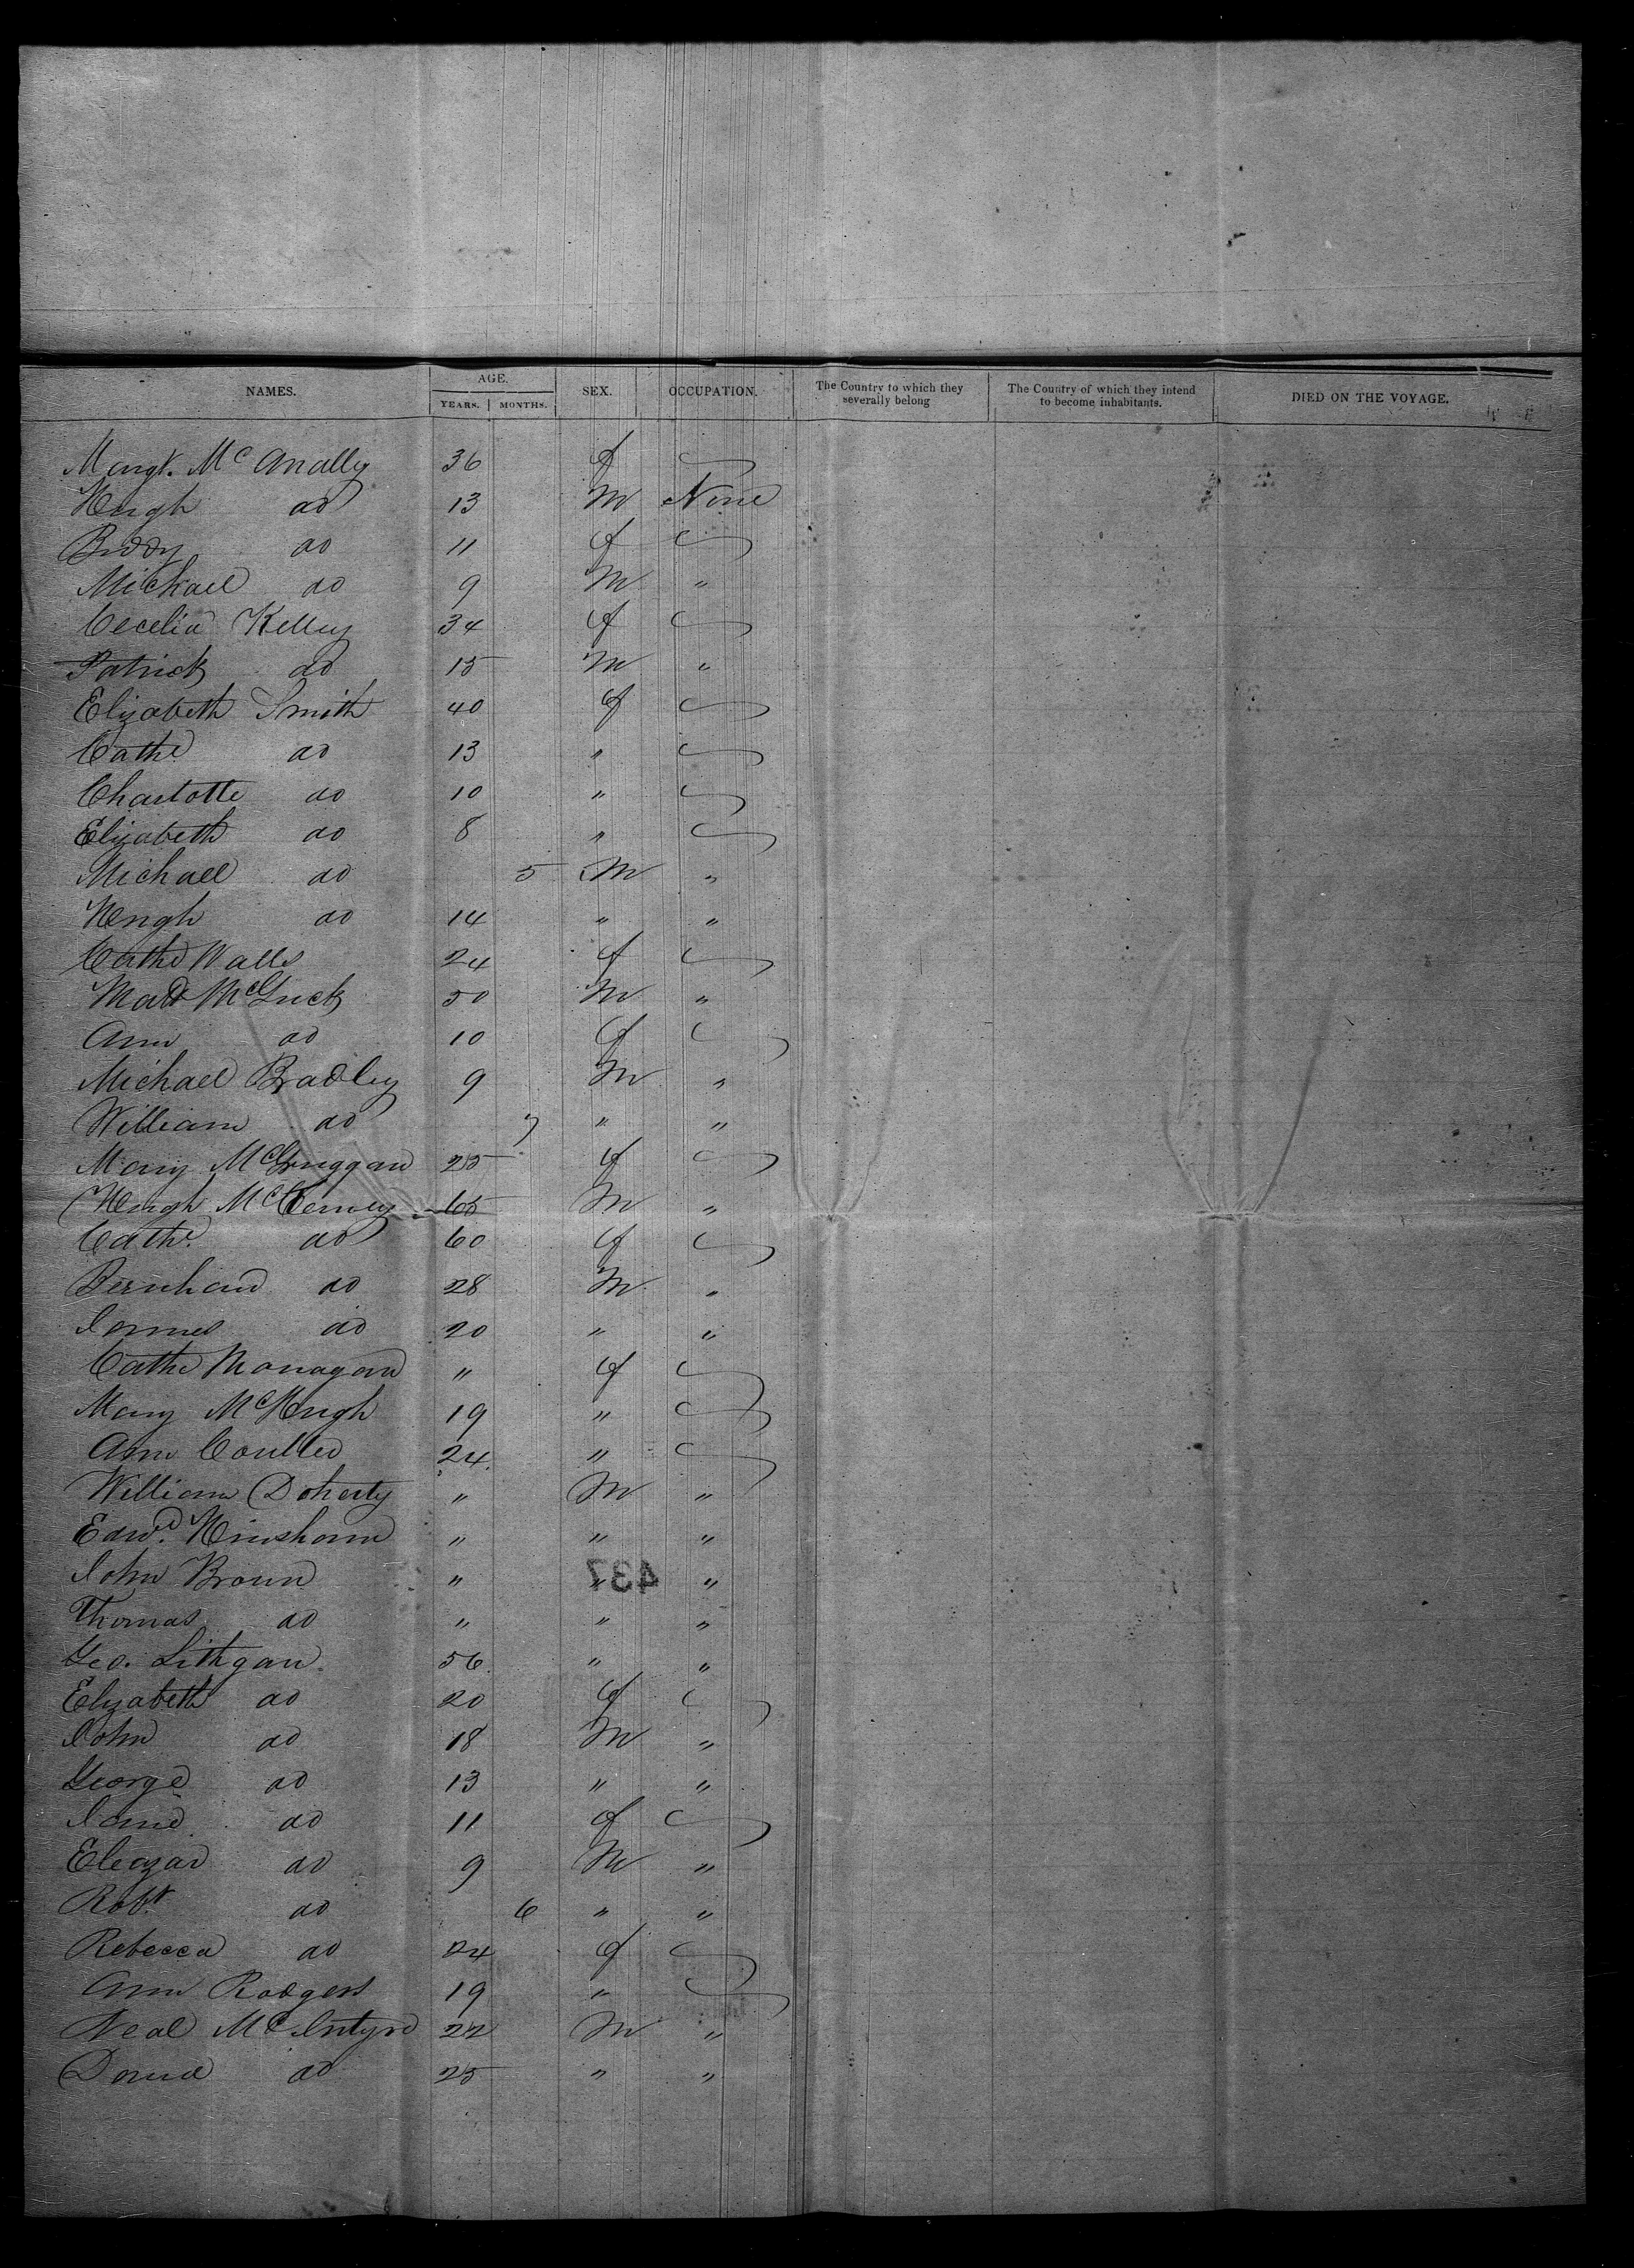 NAMES. AGE. SEX. OCCUPATION. The Country to which they severally belong The Country of which they intend to become inhabitants. DIED ON THE VOYAGE.
YEARS. MONTHS.
Margt. McAnally 36 f
Hugh do 13 M None
Biddy do 11 f
Michael do 9 M "
Cecelia Kelley 34 f
Patrick do 15 M "
Elizabeth Smith 40 f
Cathe do 13 "
Charlotte do 10 "
Elizabeth do 8 "
Michael do 5 M "
Hugh do 14 " "
Cathe Walls 24 f
Matt McGuck 50 M "
Ann do 10 f
Michael Bradley 9 M "
William do 7 " "
Mary McGuggan 25 f
Hugh McKenney 65 M "
Cathe. do 60 f
Bernhard do 28 M "
James do 20 " "
Cathe Monagan " f
Mary McHugh 19 "
Ann Coulter 24 "
William Doherty " M "
Edwd. Hinshann " " "
John Broun " " "
437
Thomas do " " "
Geo. Lithgan 56 " "
Elizabeth do 20 f
John do 18 M "
George do 13 " "
Jane do 11 f
Eleazar do 9 M "
Robt. do 6 " "
Rebecca do 24 f
Ann Rodgers 19 "
Neal McIntyre 22 M "
David do 25 " "